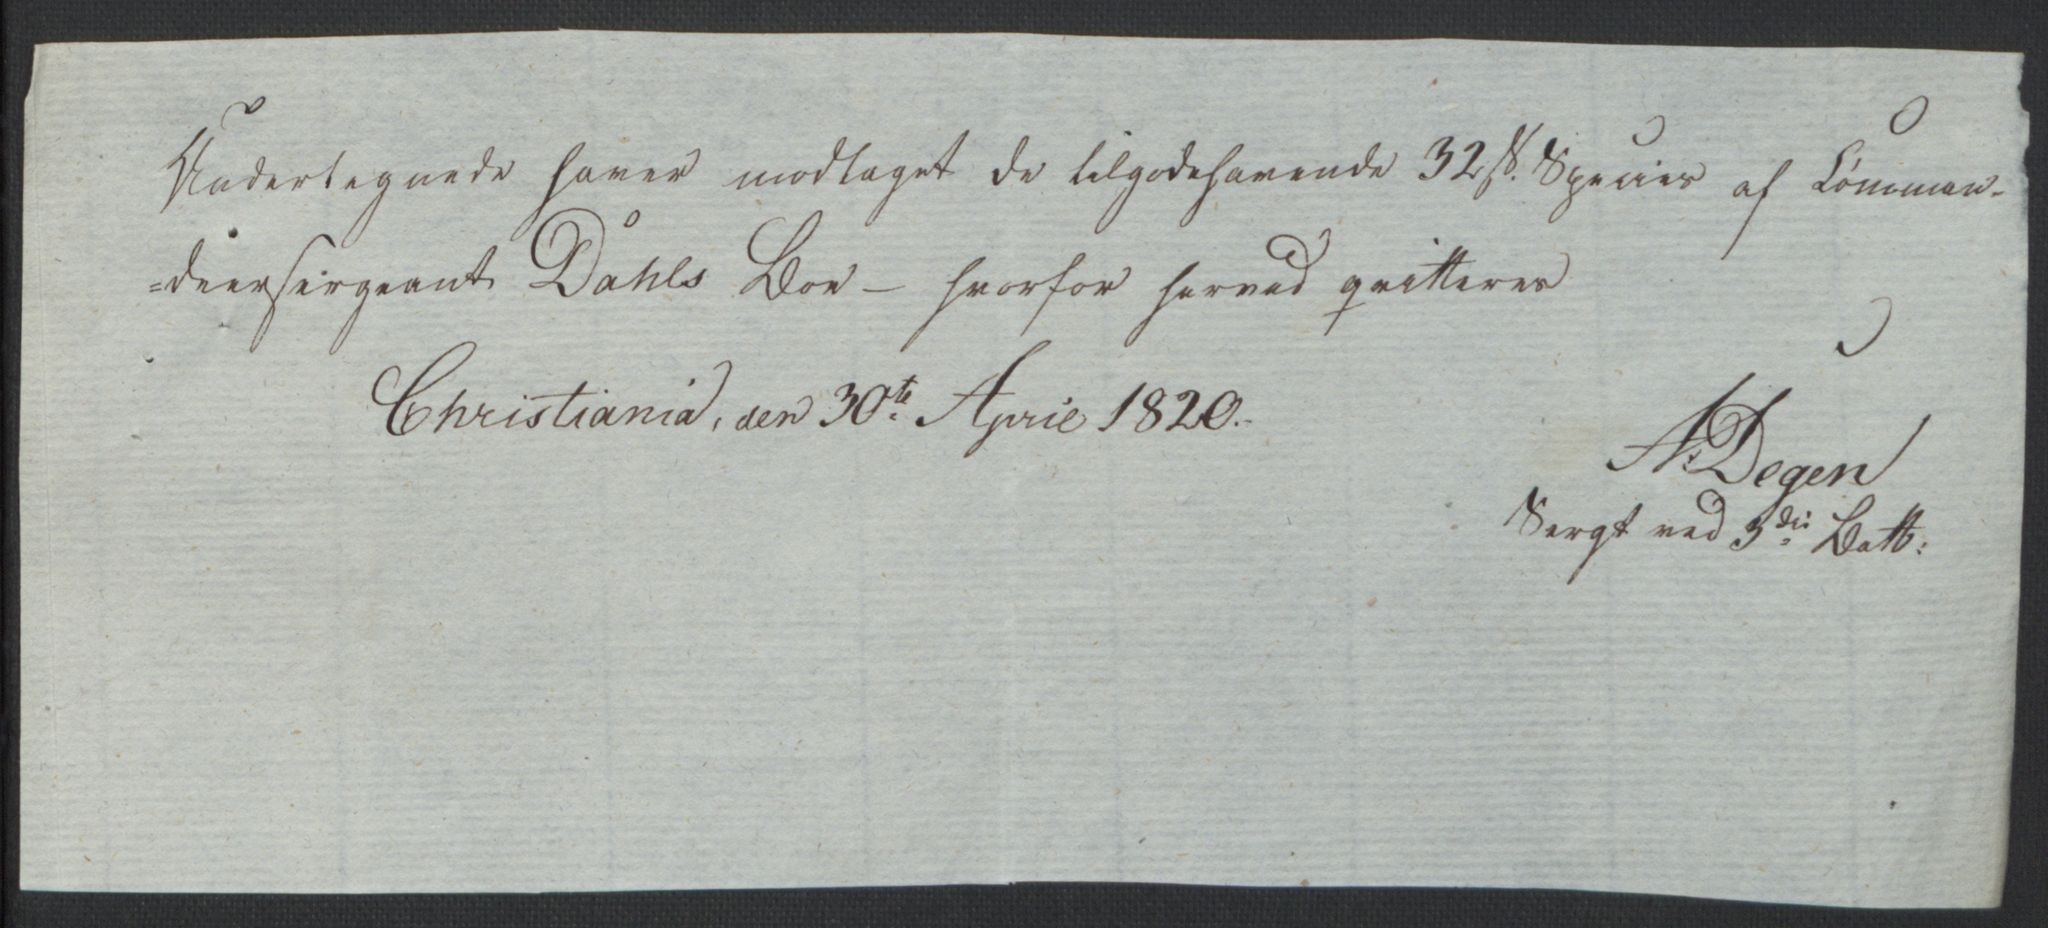 Undertegnede haver modtaget de tilgodehavende 32 s. Species af Comman-
=deersergeant Dahls Boe – hvorfor herved qvitteres
Christiania, den 30te April 1820.
A. Degen
Sergt ved 3die Batt: